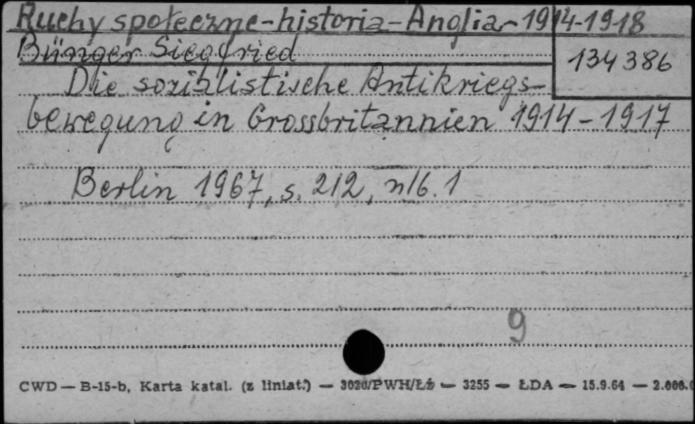 Ruchy społeczne - historia - Anglia - 1914-1918
Bünger Siegfried
134 386
Die sozialistische Antikriegs-
bewegung in Grossbritannien 1914 - 1917
Berlin 1967, s. 212, nlb. 1
9
CWD — B-15-b, Karta katal. (z liniat.) — 3020/PWH/Łź — 3255 — ŁDA — 15.9.64 — 2.000.0